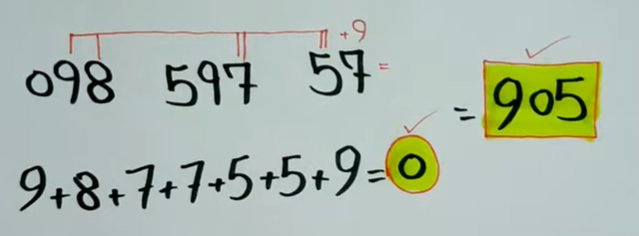 +9
098 597 57 = = 905
9+8+7+7+5+5+9=0